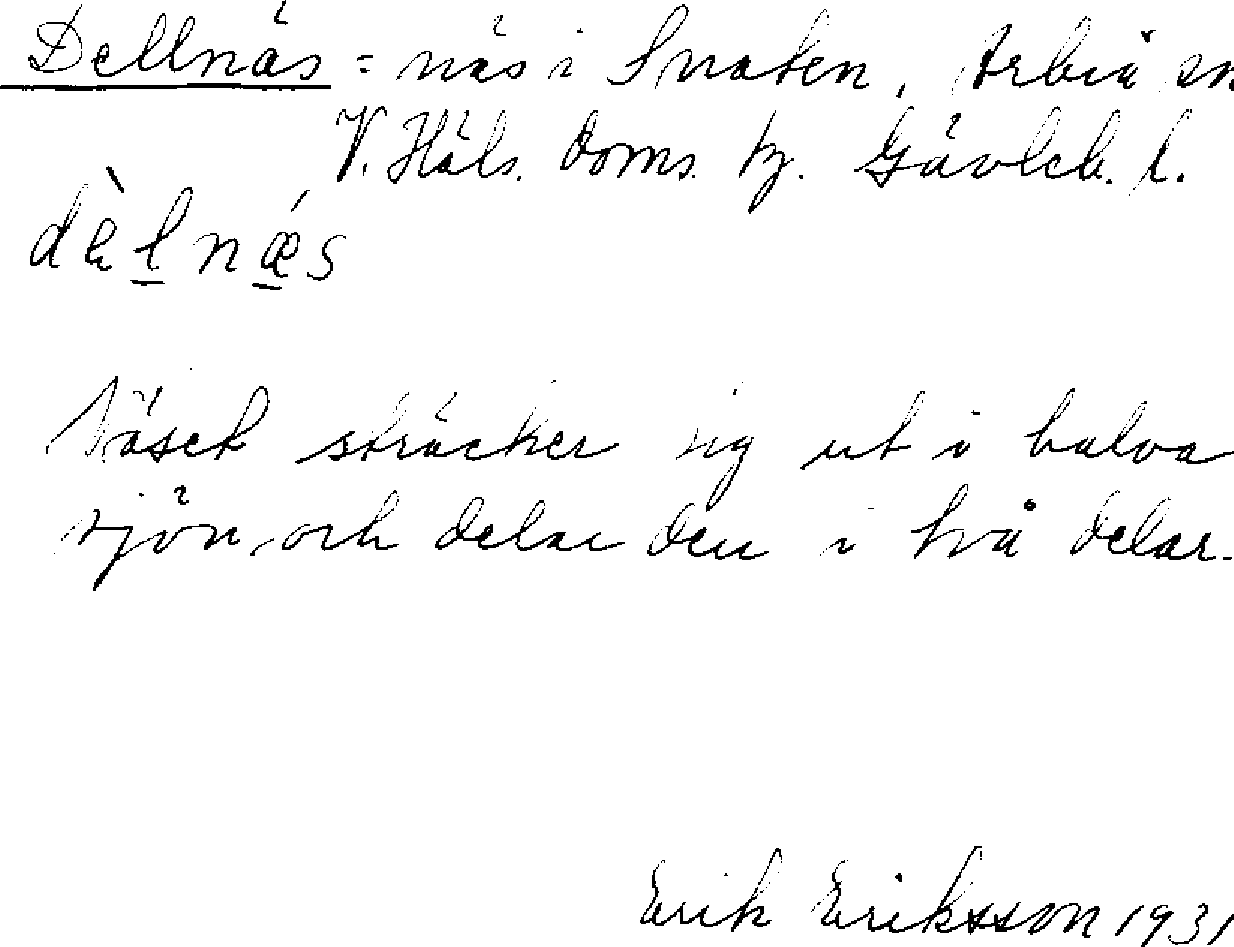 Dellnäs = näs i Snaten, Arbrå sn
V. Häls. doms. tg. Gävleb. l.
dèlnǽs
Näset sträcker sig ut i halva
sjön, och delar den i två delar.
Erik Eriksson 1931